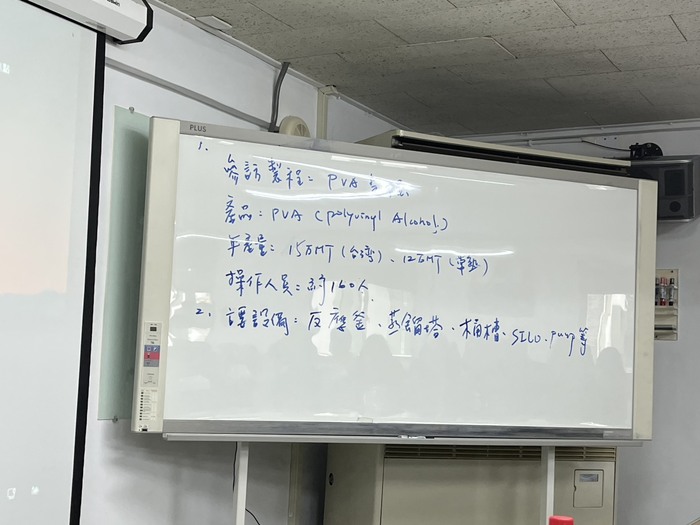 PLUS
1.
參訪製程: PVA
產品: PVA (polyvinyl Alcohol.)
年產量: 15万MT (台湾)、12万MT (常熟)
操作人員: 約160人
2. 主要設備: 反應釜、蒸餾塔、桶槽、SILO、pump等